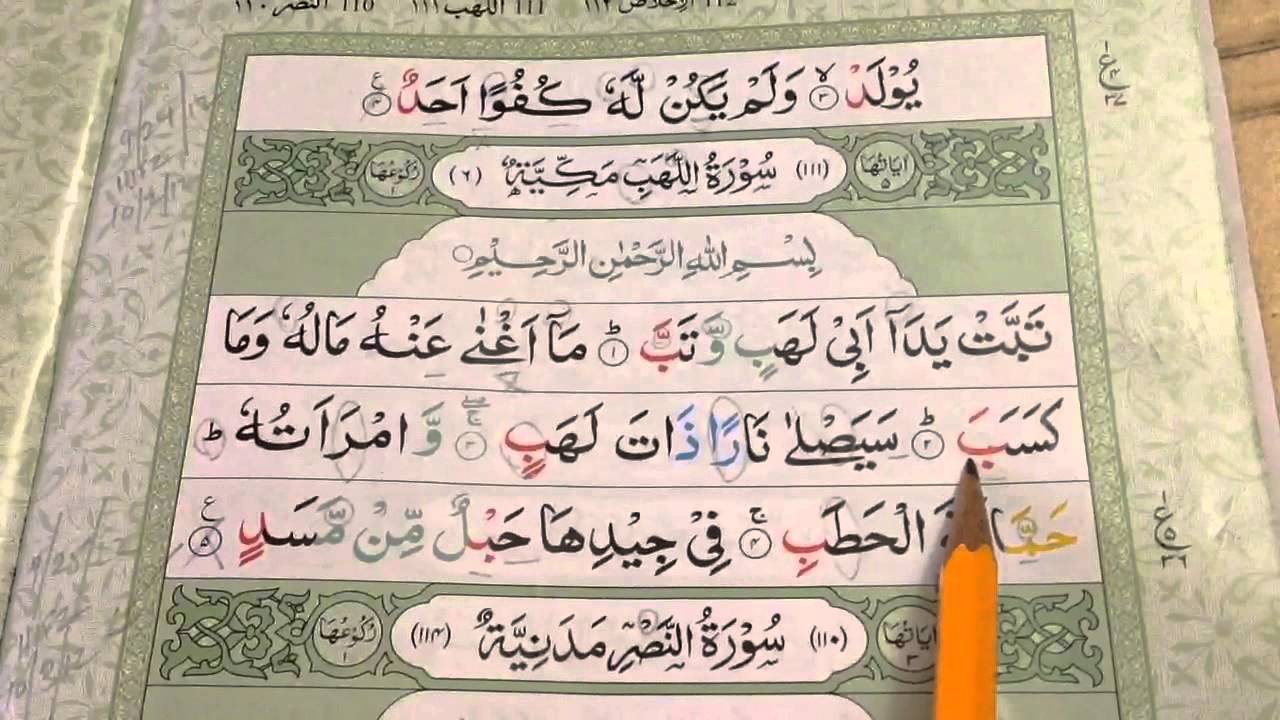 ١١٢ الإخلاص ١١٢ 111 اللهب ١١١ 110 النصر ١١٠
يُوْلَدْ ۙ۝٣ وَلَمْ يَكُنْ لَّهٗ كُفُوًا اَحَدٌ ۝٤
اٰيَاتُهَا ٥ (١١١) سُوْرَةُ اللَّهَبِ مَكِّيَّةٌ (٦) رُكُوْعُهَا ١
بِسْمِ اللّٰهِ الرَّحْمٰنِ الرَّحِيْمِ
تَبَّتْ يَدَآ اَبِيْ لَهَبٍ وَّتَبَّ ؕ۝١ مَآ اَغْنٰى عَنْهُ مَالُهٗ وَمَا
كَسَبَ ؕ۝٢ سَيَصْلٰى نَارًا ذَاتَ لَهَبٍ ۖۚ۝٣ وَّامْرَاَتُهٗ ؕ
حَمَّالَةَ الْحَطَبِ ۚ۝٤ فِيْ جِيْدِهَا حَبْلٌ مِّنْ مَّسَدٍ ۝٥
اٰيَاتُهَا ٣ (١١٠) سُوْرَةُ النَّصْرِ مَدَنِيَّةٌ (١١٤) رُكُوْعُهَا ١